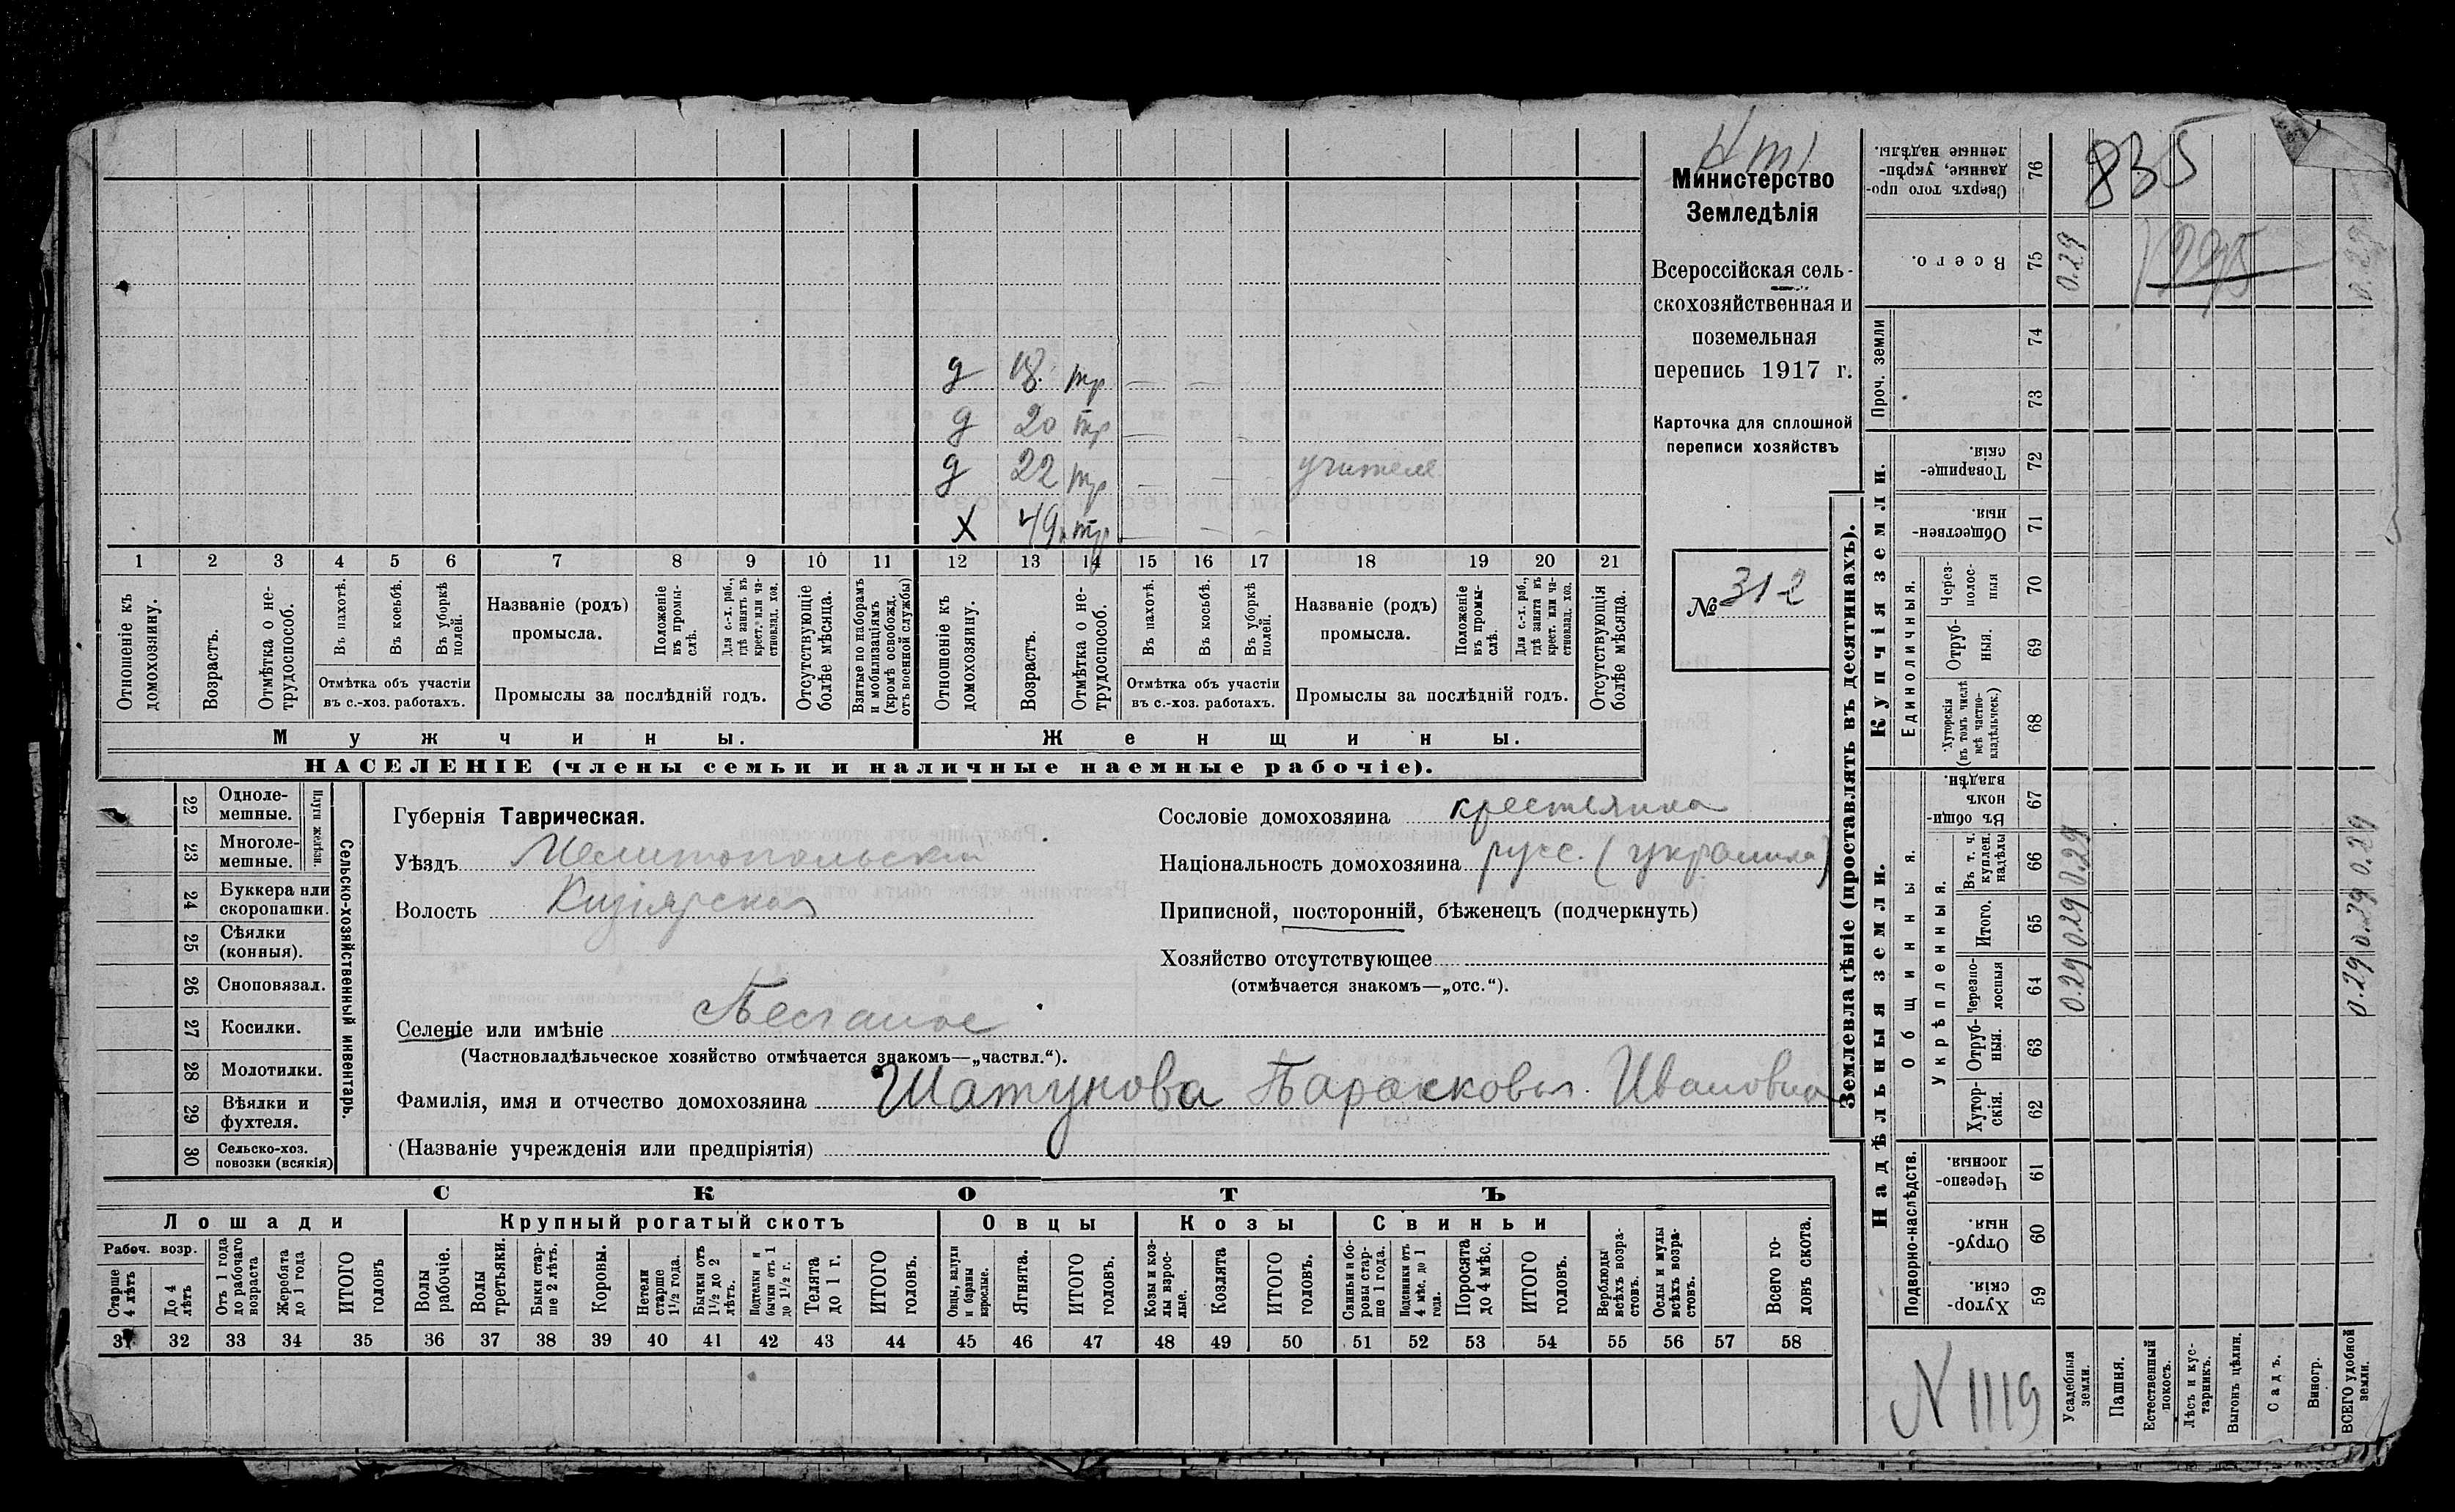 Министерство
Земледѣлія
Всероссійская сель-
скохозяйственная и
поземельная
перепись 1917 г.
Карточка для сплошной
переписи хозяйствъ
№ 312
д 18 тр — —
д 20 тр — — —
д 22 тр — — — учителя
х 49 тр — — —
1 2 3 4 5 6 7 8 9 10 11 12 13 14 15 16 17 18 19 20 21
Отношеніе къ домохозяину.
Возрастъ.
Отмѣтка о не-трудоспособ.
Въ пахотѣ.
Въ косьбѣ.
Въ уборкѣ полей.
Отмѣтка объ участіи
въ с.-хоз. работахъ.
Названіе (родъ)
промысла.
Положеніе въ промы-слѣ.
Для с.-х. раб., гдѣ занятъ въ крест. или ча-стновлад. хоз.
Промыслы за послѣдній годъ.
Отсутствующіе болѣе мѣсяца.
Взятые по наборамъ и мобилизаціямъ (кромѣ освобожд. отъ военной службы)
Отношеніе къ домохозяину.
Возрастъ.
Отмѣтка о не-трудоспособ.
Въ пахотѣ.
Въ косьбѣ.
Въ уборкѣ полей.
Отмѣтка объ участіи
въ с.-хоз. работахъ.
Названіе (родъ)
промысла.
Положеніе въ промы-слѣ.
Для с.-х. раб., гдѣ занята въ крест. или ча-стновлад. хоз.
Промыслы за послѣдній годъ.
Отсутствующія болѣе мѣсяца.
Мужчины. Женщины.
НАСЕЛЕНІЕ (члены семьи и наличные наемные рабочіе).
Сельско-хозяйственный инвентарь.
Плуги желѣзн.
22 Одноле-мешные.
23 Многоле-мешные.
24 Буккера или скоропашки.
25 Сѣялки (конныя).
26 Сноповязал.
27 Косилки.
28 Молотилки.
29 Вѣялки и фухтеля.
30 Сельско-хоз. повозки (всякія)
Губернія Таврическая.
Уѣздъ Мелитопольскій
Волость Кизіярская
Селеніе или имѣніе Песчаное
(Частновладѣльческое хозяйство отмѣчается знакомъ—„частвл.“).
Фамилія, имя и отчество домохозяина Шатунова Парасковья Ивановна
(Названіе учрежденія или предпріятія)
Сословіе домохозяина крестьянка
Національность домохозяина русс. (украинка)
Приписной, посторонній, бѣженецъ (подчеркнуть)
Хозяйство отсутствующее
(отмѣчается знакомъ—„отс.“).
СКОТЪ
Лошади Крупный рогатый скотъ Овцы Козы Свиньи
Рабоч. возр.
Старше 4 лѣтъ
До 4 лѣтъ
Отъ 1 года до рабочаго возраста
Жеребята до 1 года
ИТОГО головъ
Волы рабочіе.
Волы третьяки.
Быки стар-ше 2 лѣтъ.
Коровы.
Нетели старше 1½ года.
Бычки отъ 1½ до 2 лѣтъ.
Подтелки и бычки отъ 1 до 1½ г.
Телята до 1 г.
ИТОГО головъ.
Овцы, валухи и бараны взрослые.
Ягнята.
ИТОГО головъ.
Козы и коз-лы взрос-лые.
Козлята
ИТОГО головъ.
Свиньи и бо-ровы стар-ше 1 года.
Подсвинки отъ 4 мѣс. до 1 года.
Поросята до 4 мѣс.
ИТОГО головъ.
Верблюды всѣхъ возра-стовъ.
Ослы и мулы всѣхъ возра-стовъ.
Всего го-ловъ скота.
31 32 33 34 35 36 37 38 39 40 41 42 43 44 45 46 47 48 49 50 51 52 53 54 55 56 57 58
Землевладѣніе (проставлять въ десятинахъ).
Надѣльныя земли. Купчія земли. Проч. земли
Подворно-наслѣдств.
Общинныя.
Укрѣпленныя.
Единоличныя.
Хутор-скія. 59
Отруб-ныя. 60
Черезпо-лосныя. 61
Хутор-скія. 62
Отруб-ныя. 63
Черезпо-лосныя 64 0.29 0.29
Итого. 65 0.29 0.29
Въ т. ч. куплен. надѣлы 66 0.29 0.29
Въ общи-номъ владѣн. 67
Хуторскія (въ томъ числѣ всѣ частно-владѣльческ.) 68
Отруб-ныя. 69
Через-полос-ныя 70
Обществен-ныя. 71
Товарище-скія. 72
73
74
Всего. 75 0.29 0.29
Сверхъ того про-данные, укрѣп-ленные надѣлы. 76
835
N 1119
Усадебныя земли.
Пашня.
Естественный покосъ.
Лѣсъ и кус-тарникъ.
Выгонъ цѣлин.
Садъ.
Виногр.
ВСЕГО удобной земли.